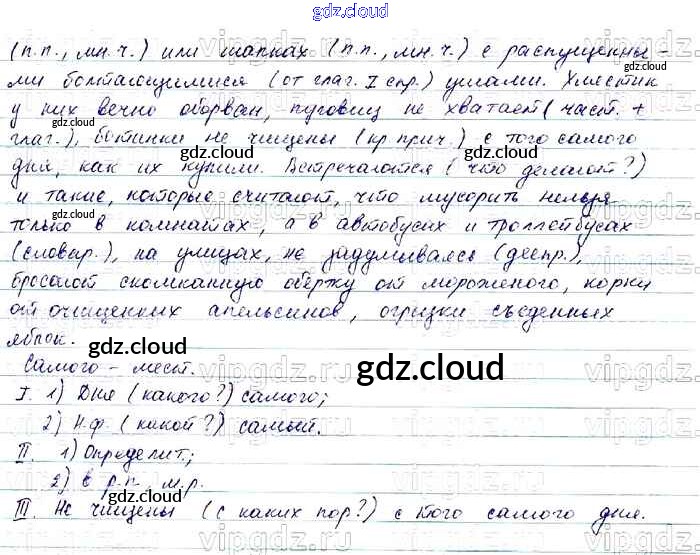 gdz.cloud
(п.п., мн.ч.) или шапках (п.п., мн.ч.) с распущенны-
ми болтающимися (от глаг. I спр.) ушами. Хлястик
у них вечно оборван, пуговиц не хватает (част. +
глаг.), ботинки не чищены (кр.прич.) с того самого
дня, как их купили. Встречаются (что делают?)
и такие, которые считают, что мусорить нельзя
только в комнатах, а в автобусах и троллейбусах
(словар.), на улицах, не задумываясь (деепр.),
бросают скомканную обёртку от мороженого, корки
от очищенных апельсинов, огрызки съеденных
яблок.
Самого - мест.
I. 1) Дня (какого?) самого;
2) Н.ф. (какой?) самый.
II. 1) Определит.;
2) в р.п., м.р.
III. Не чищены (с каких пор?) с того самого дня.